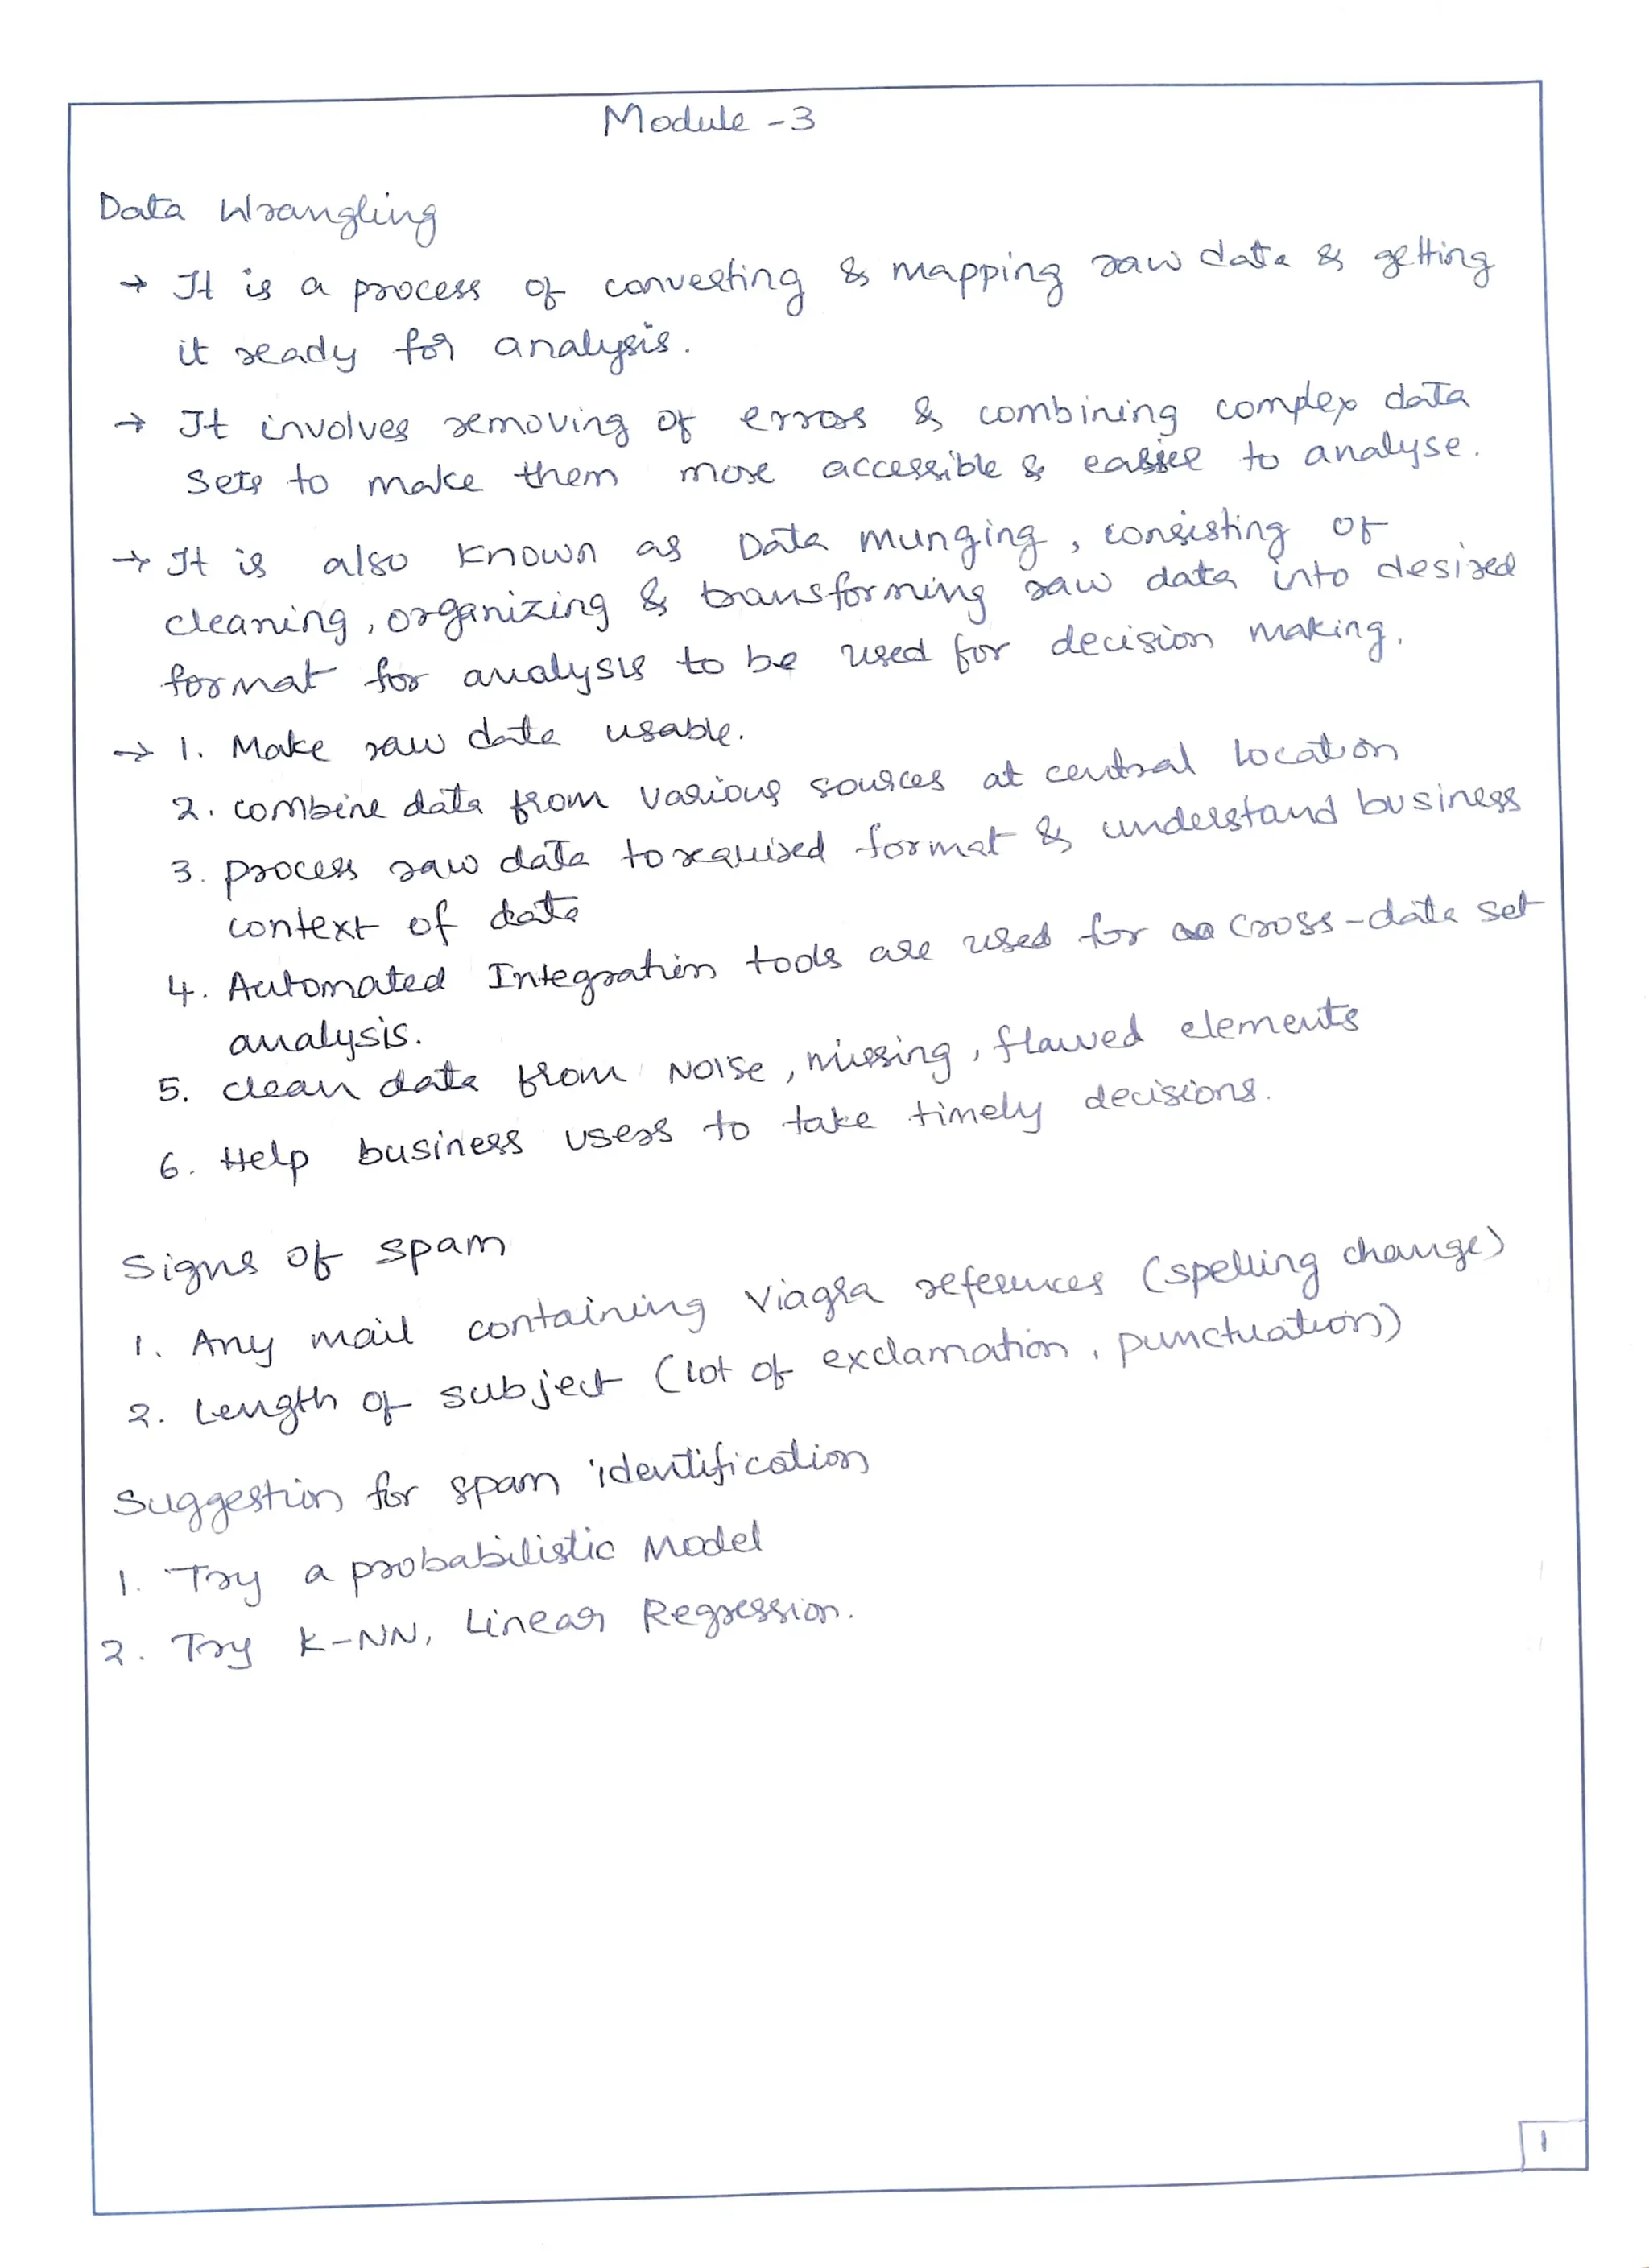 Module - 3
Data Wrangling
→ It is a process of converting & mapping raw data & getting
it ready for analysis.
→ It involves removing of errors & combining complex data
sets to make them more accessible & easier to analyse.
→ It is also known as Data munging, consisting of
cleaning, organizing & transforming raw data into desired
format for analysis to be used for decision making.
→ 1. Make raw data usable.
2. combine data from various sources at central location
3. process raw data to required format & understand business
context of data
4. Automated Integration tools are used for cross-data set
analysis.
5. clean data from Noise, missing, flawed elements
6. Help business users to take timely decisions.
Signs of spam
1. Any mail containing Viagra references (spelling change)
2. Length of subject (lot of exclamation, punctuation))
Suggestion for spam identification
1. Try a probabilistic Model
2. Try K-NN, Linear Regression.
1